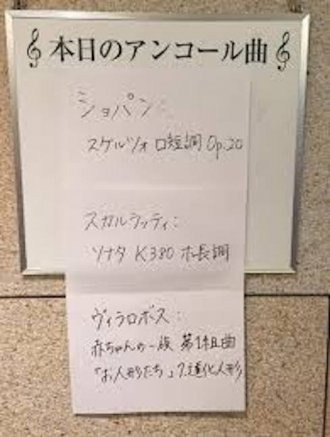 本日のアンコール曲
ショパン:
スケルツォ ロ短調 Op.20
スカルラッティ:
ソナタ K380 ホ長調
ヴィラロボス:
赤ちゃんの一族 第1組曲
「お人形たち」7.道化人形